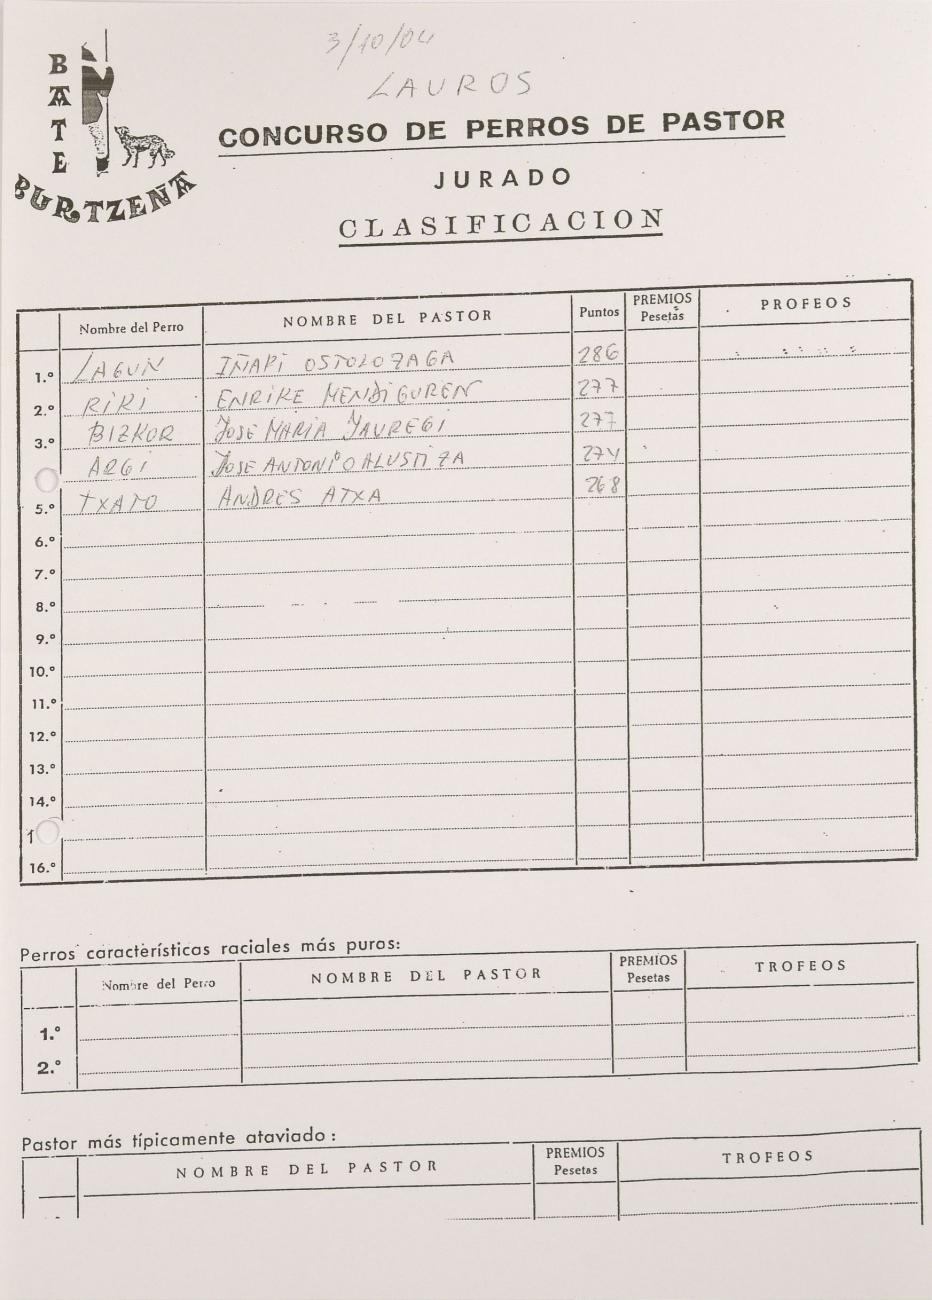 3/10/04
LAUROS
BATE
BURTZEÑA
CONCURSO DE PERROS DE PASTOR
JURADO
CLASIFICACION
Nombre del Perro NOMBRE DEL PASTOR Puntos PREMIOS Pesetas PROFEOS
1.º LAGUN IÑAKI OSTOLOZAGA 286
2.º RIKI ENRIKE MENDIGUREN 277
3.º BIZKOR JOSE MARIA JAUREGI 277
ARGI JOSE ANTONIO ALUSTIZA 274
5.º TXATO ANDRES ATXA 268
6.º
7.º
8.º
9.º
10.º
11.º
12.º
13.º
14.º
1
16.º
Perros características raciales más puros:
Nombre del Perro NOMBRE DEL PASTOR PREMIOS Pesetas TROFEOS
1.º
2.º
Pastor más típicamente ataviado:
NOMBRE DEL PASTOR PREMIOS Pesetas TROFEOS